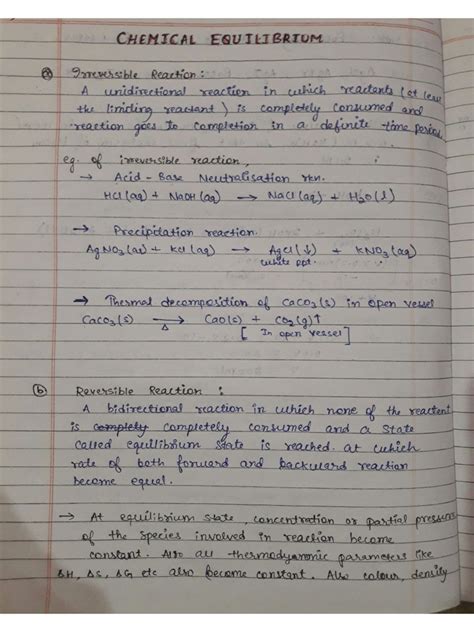 CHEMICAL EQUILIBRIUM
ⓐ Irreversible Reaction :
A unidirectional reaction in which reactants (at least
the limiting reactant) is completely consumed and
reaction goes to completion in a definite time period.
eg. of irreversible reaction,
→ Acid - Base Neutralisation rxn.
HCl (aq) + NaOH (aq) → NaCl (aq) + H₂O (l)
→ Precipitation reaction.
AgNO₃ (aq) + KCl (aq) → AgCl (↓) + KNO₃ (aq)
white ppt.
→ Thermal decomposition of CaCO₃ (s) in open vessel
CaCO₃ (s) →Δ CaO (s) + CO₂ (g)↑
[ In open vessel ]
ⓑ Reversible Reaction :
A bidirectional reaction in which none of the reactant
is completely completely consumed and a state
called equilibrium state is reached. at which
rate of both forward and backward reaction
become equal.
→ At equilibrium state, concentration or partial pressure
of the species involved in reaction become
constant. Also all thermodynamic parameters like
ΔH, ΔS, ΔG etc also become constant. Also colour, density